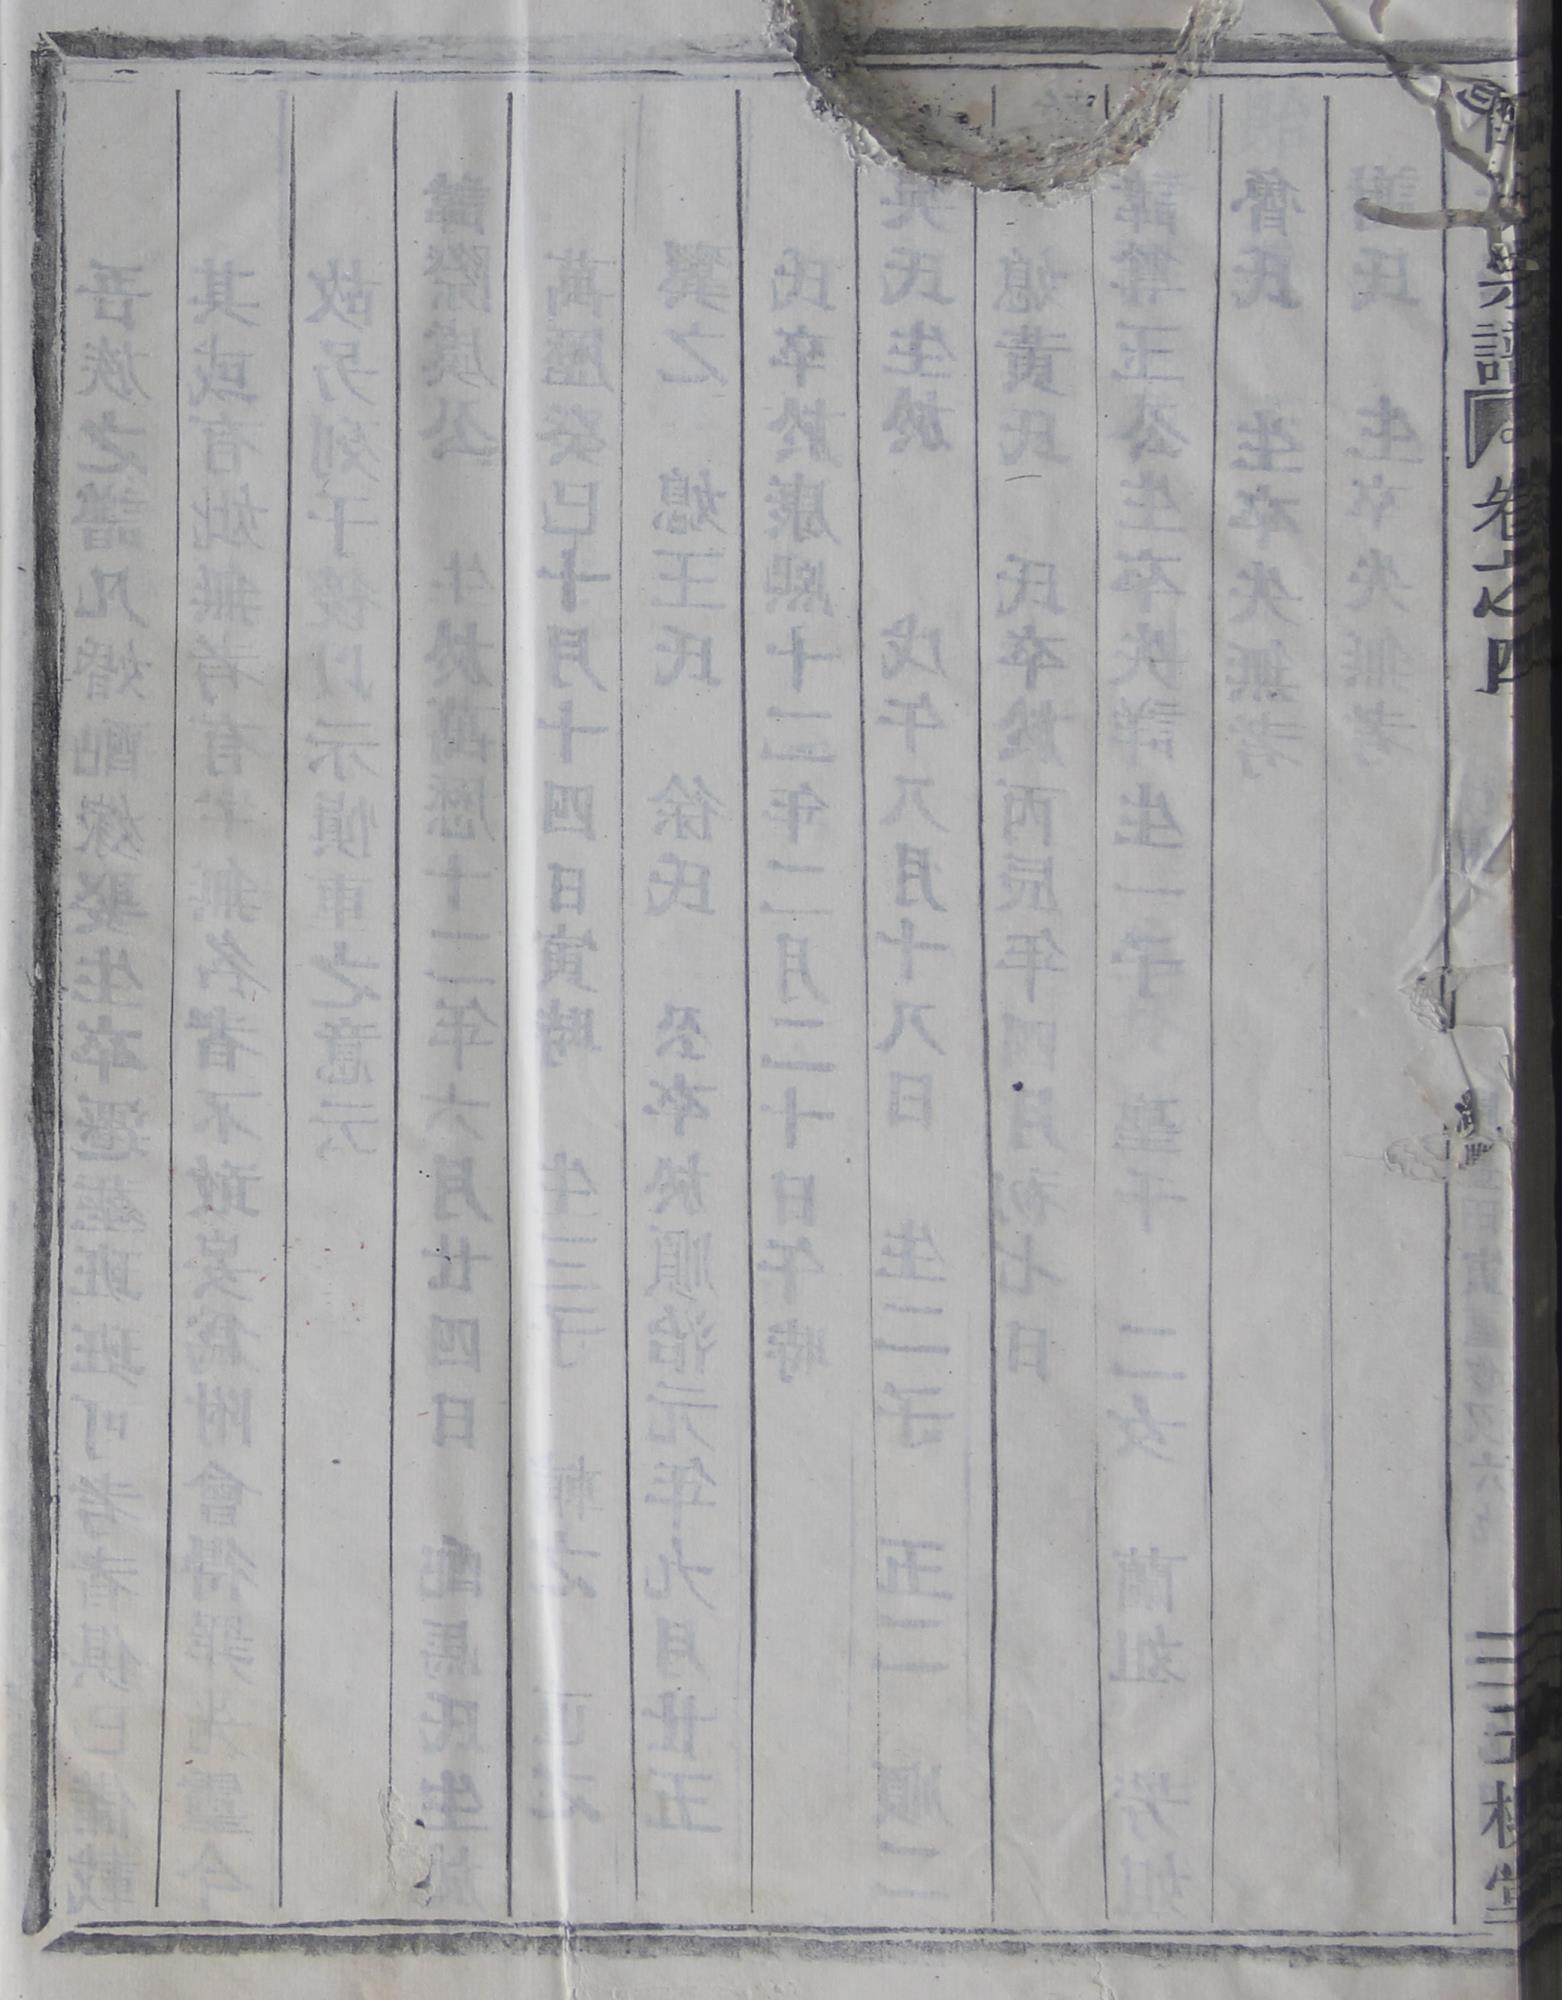 吾族之譜凡婚配嫁娶生卒遷葬班班可考者俱已備載
其或有妣無考有無名者不敢妄爲附會得罪先靈今
故另列于後以示慎重之意云
諱際廣公 生於萬歷十二年六月廿四日 配馬氏生於
萬歷癸巳十月十四日寅時 生三子 輔之
翼之 媳王氏 徐氏 公卒於順治元年九月廿五
氏卒於康熙十三年二月二十日午時
吳氏生於 戊午八月十八日 生二子 五二 順二
媳黃氏 氏卒於丙辰年四月初七日
諱尊玉公生卒失詳生一子 聖千 二女 蘭姐
曾氏 生卒失無考
謝氏 生卒失無考
宗譜 卷之四 三槐堂